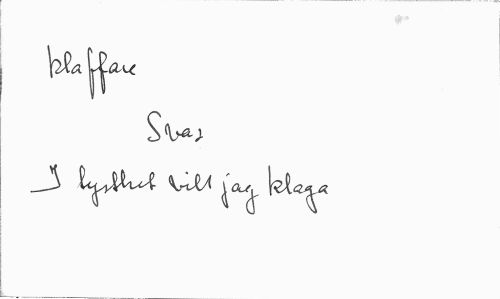 klaffare
Svar
I tysthet vill jag klaga